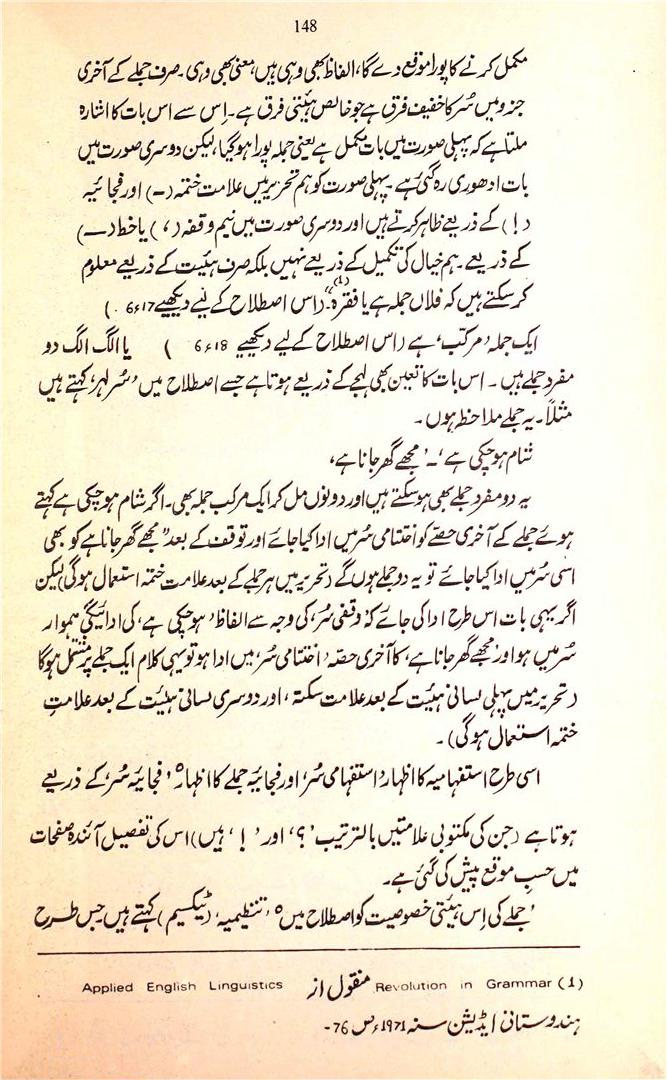 148
مکمل کرنے کا پورا موقع دے گا، الفاظ بھی وہی ہیں، معنی بھی وہی۔ صرف جملے کے آخری
جزو میں سُر کا خفیف فرق ہے جو خالص ہیئتی فرق ہے۔ اِس سے اس بات کا اشارہ
ملتا ہے کہ پہلی صورت میں بات مکمل ہے یعنی جملہ پورا ہو گیا، لیکن دوسری صورت میں
بات ادھوری رہ گئی ہے۔ پہلی صورت کو ہم تحریر میں علامت ختمہ (۔) اور فجائیہ
(!) کے ذریعے ظاہر کرتے ہیں اور دوسری صورت میں نیم وقفہ (،) یا خط (—)
کے ذریعے۔ ہم خیال کی تکمیل کے ذریعے نہیں بلکہ صرف ہیئت کے ذریعے معلوم
کر سکتے ہیں کہ فلاں جملہ ہے یا فقرہ۔" (1) (اس اصطلاح کے لیے دیکھیے 6ء17 )
ایک جملہ 'مرکب' ہے (اس اصطلاح کے لیے دیکھیے 6ء18 ) یا الگ الگ دو
مفرد جملے ہیں۔ اس بات کا تعین بھی لہجے کے ذریعے ہوتا ہے جسے اصطلاح میں 'سُر لہر' کہتے ہیں
مثلاً۔ یہ جملے ملاحظہ ہوں۔
شام ہو چکی ہے'۔ 'مجھے گھر جانا ہے،
یہ دو مفرد جملے بھی ہو سکتے ہیں اور دونوں مل کر ایک مرکب جملہ بھی۔ اگر شام ہو چکی ہے کہتے
ہوئے جملے کے آخری حصّے کو اختتامی سُر میں ادا کیا جائے اور توقف کے بعد "مجھے گھر جانا ہے کو بھی
اسی سُر میں ادا کیا جائے تو یہ دو جملے ہوں گے (تحریر میں ہر جملے کے بعد علامت ختمہ استعمال ہوگی) لیکن
اگر یہی بات اس طرح ادا کی جائے کہ 'وقفی سُر' کی وجہ سے الفاظ 'ہو چکی ہے' کی ادائیگی ہموار
سُر میں ہو اور 'مجھے گھر جانا ہے' کا آخری حصّہ 'اختتامی سُر' میں ادا ہو تو یہی کلام ایک جملے پر مشتمل ہوگا
(تحریر میں پہلی لسانی ہیئت کے بعد علامت سکتہ، اور دوسری لسانی ہیئت کے بعد علامتِ
ختمہ استعمال ہوگی)۔
اسی طرح استفہامیہ کا اظہار 'استفہامی سُر' اور فجائیہ جملے کا اظہار 'فجائیہ سُر' کے ذریعے
ہوتا ہے (جن کی مکتوبی علامتیں بالترتیب '؟' اور '!' ہیں) اس کی تفصیل آئندہ صفحات
میں حسبِ موقع پیش کی گئی ہے۔
'جملے کی اِس ہیئتی خصوصیت کو اصطلاح میں 'تنظیمیہ' (ٹیکسیم) کہتے ہیں جس طرح
(1) Revolution in Grammar منقول از Applied English Linguistics
ہندوستانی ایڈیشن سنہ 1971ء ص 76۔